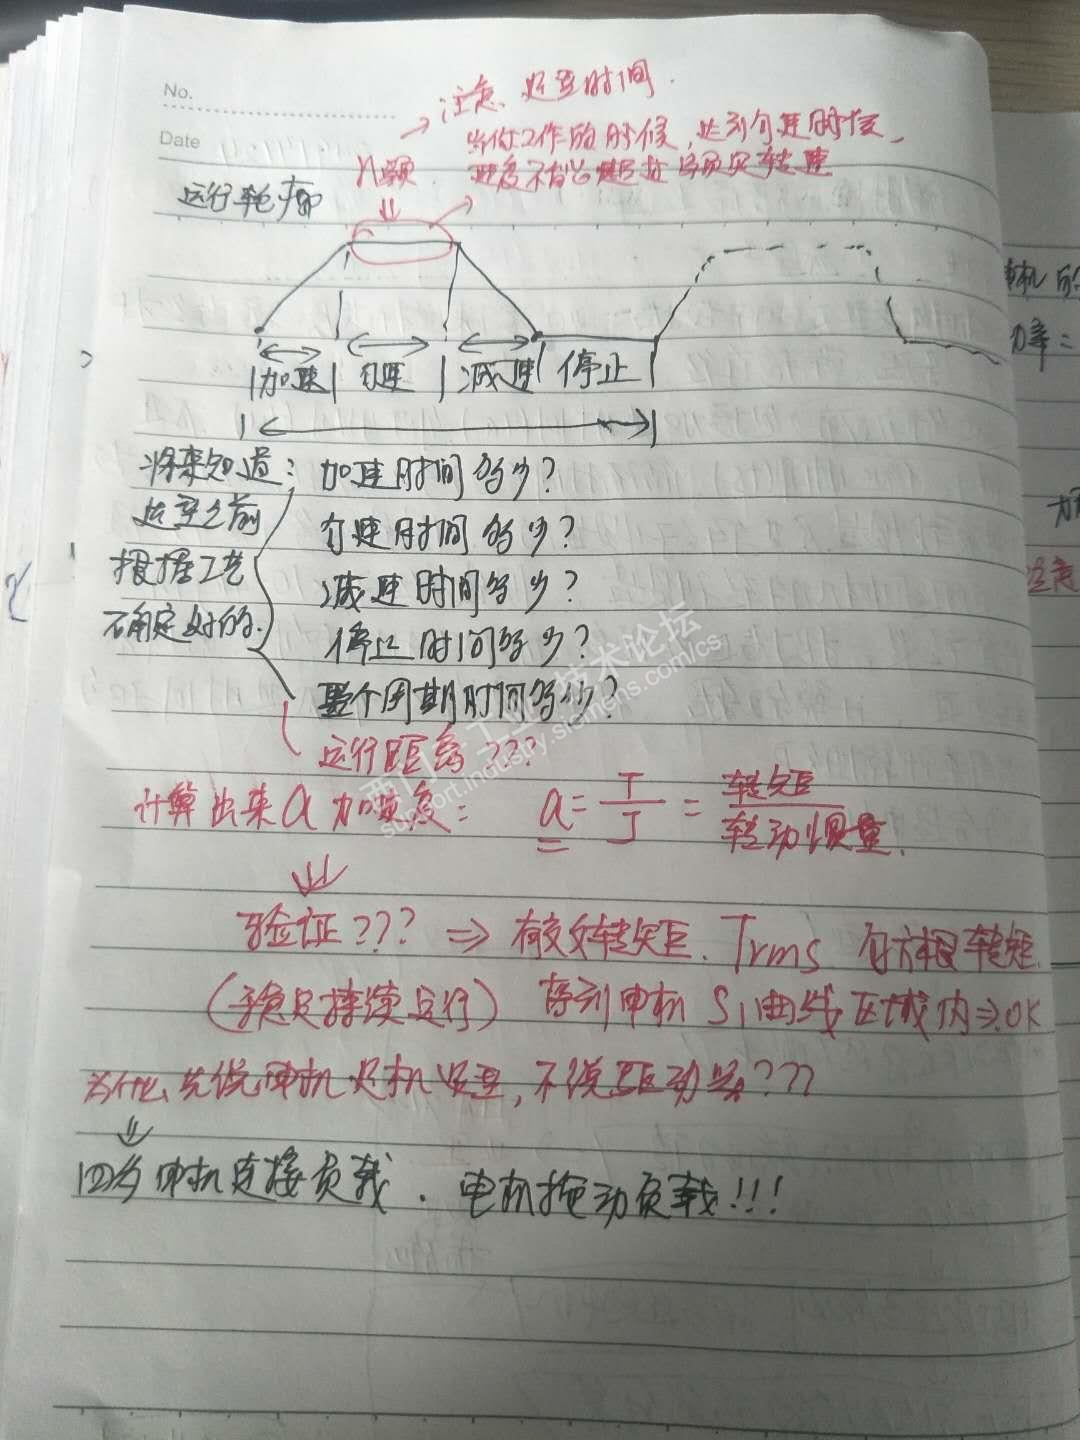 No.
Date
注意、起至时间.
当你工作的时候,达到匀速时候,
速度不能超过额定转速
n额.
运行轮廓
加速 匀速 减速 停止
将来知道: 加速时间多少?
选型之前 匀速时间多少?
根据工艺 减速时间多少?
确定好的. 停止时间多少?
整个周期时间多少?
运行距离???
计算出来a加速度: a = T/J = 转矩/转动惯量.
验证??? ⇒ 有效转矩. Trms 均方根转矩.
(持续运行) 落到电机S1曲线区域内⇒OK
为什么先说电机选型,不说驱动器???
因为电机连接负载. 电机拖动负载!!!
电机的
功率=
注意
西门子工业技术论坛
support.industry.siemens.com/cs